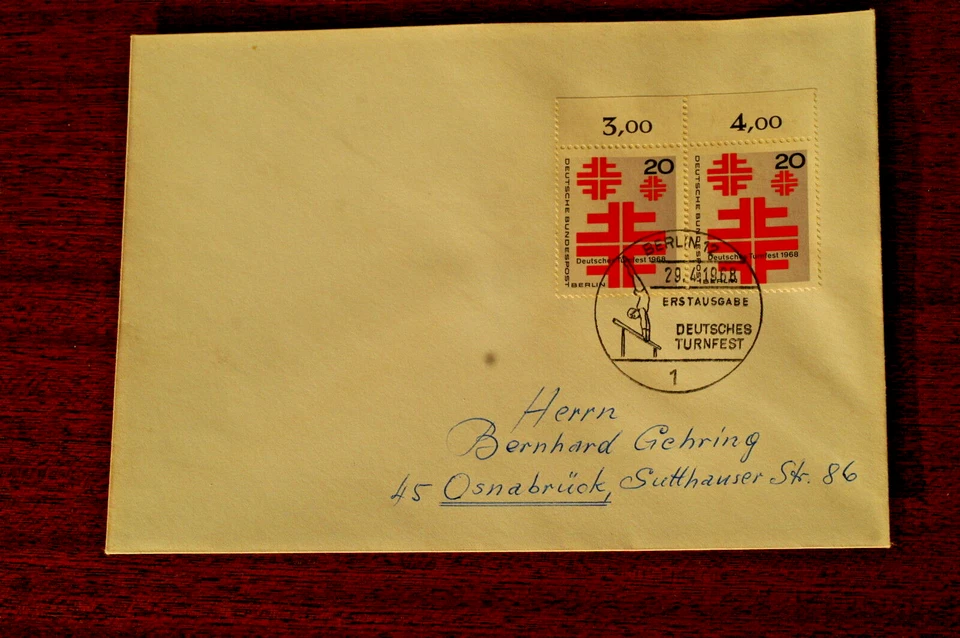 3,00
4,00
20
DEUTSCHE BUNDESPOST
Deutsches Turnfest 1968
BERLIN
20
DEUTSCHE BUNDESPOST
Deutsches Turnfest 1968
BERLIN
BERLIN 12
29.4.1968
ERSTAUSGABE
DEUTSCHES
TURNFEST
1
Herrn
Bernhard Gehring
45 Osnabrück, Sutthauser Str. 86